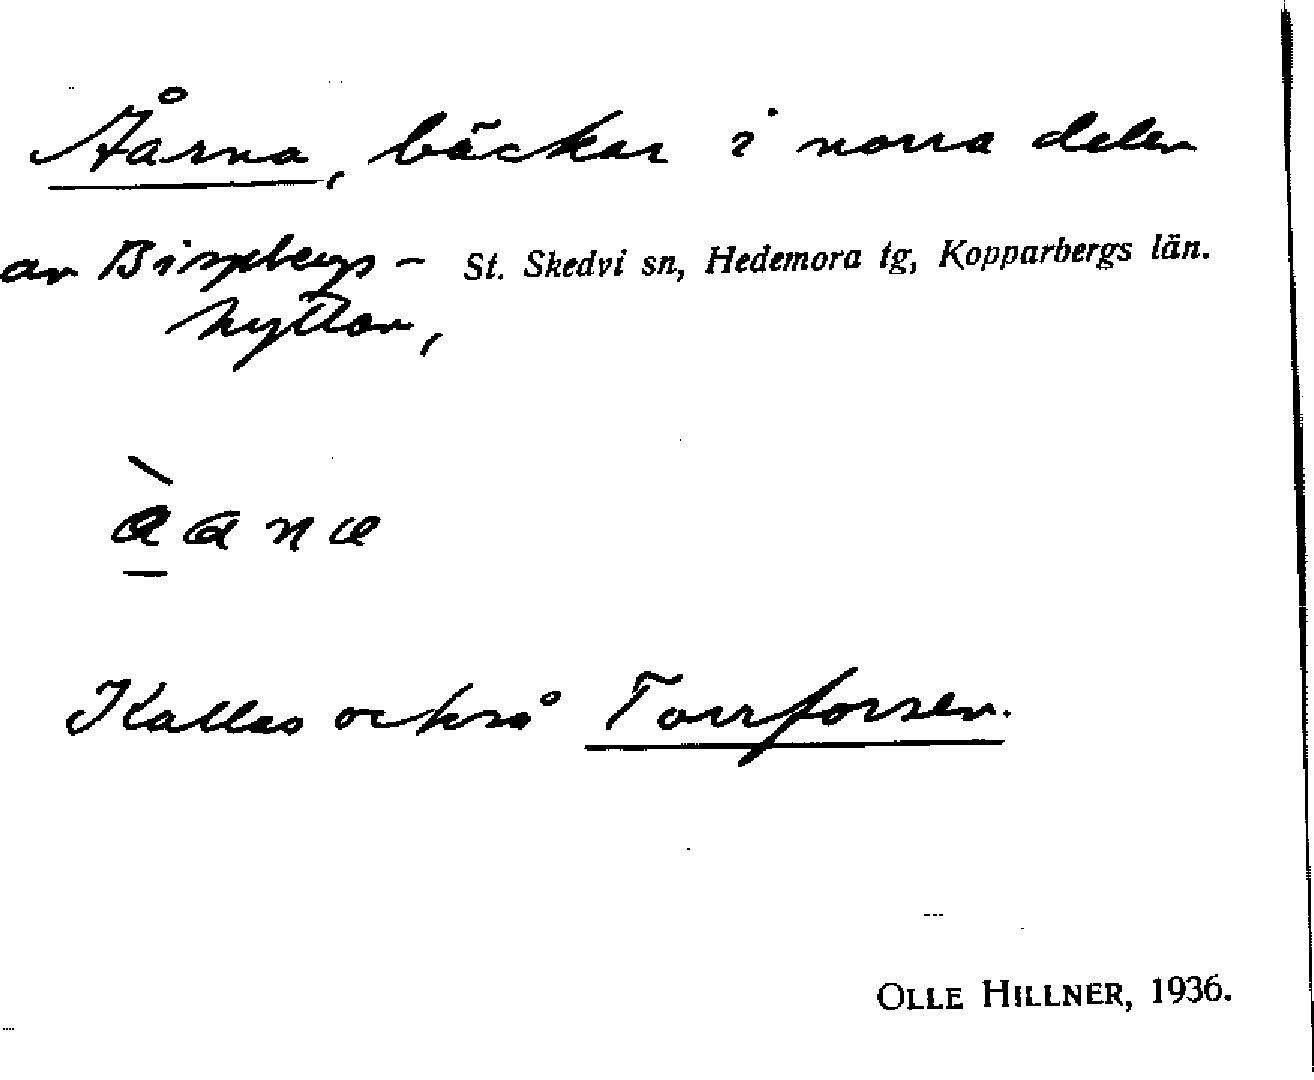 Åarna, bäckar i norra delen
av Bispbergs- St. Skedvi sn, Hedemora tg, Kopparbergs län.
hyttan,
à̱ana
Kallas också Torrforsen.
OLLE HILLNER, 1936.